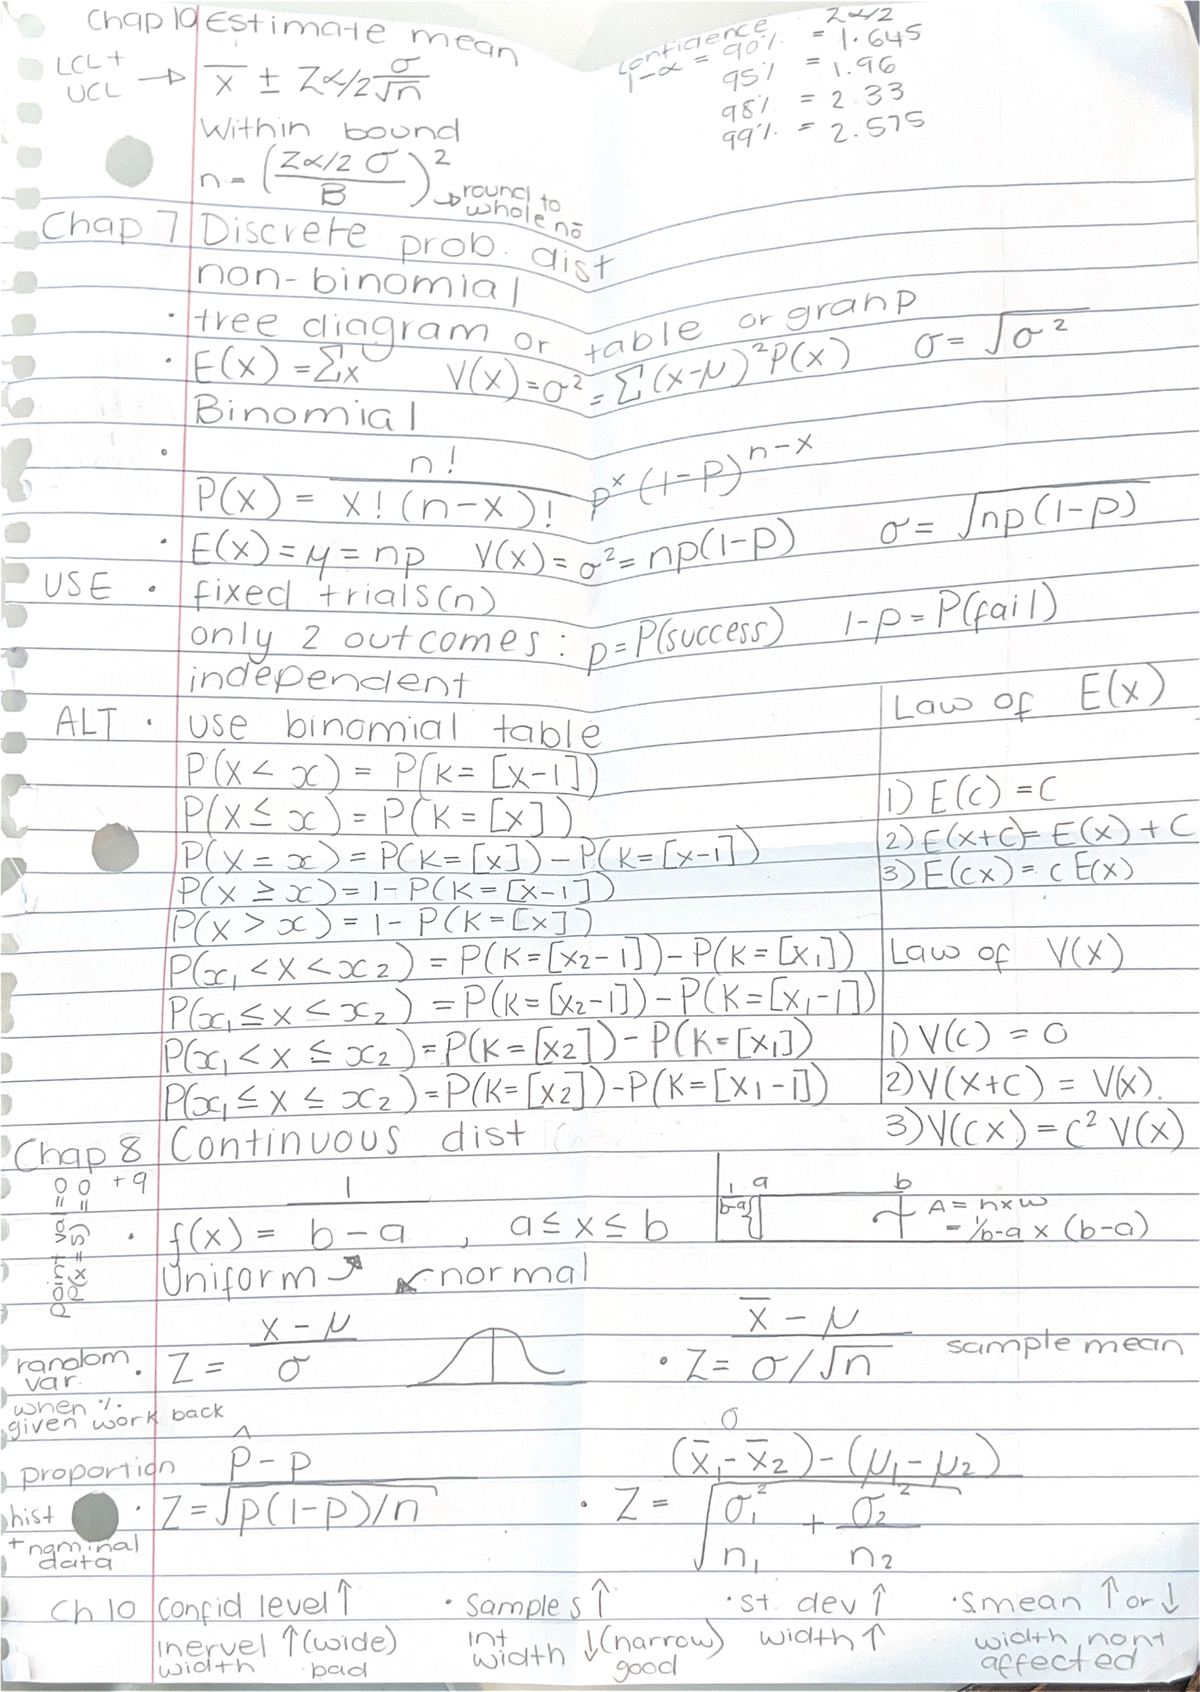 Chap 10 Estimate mean
confidence Zα/2
1-α = 90% = 1.645
95% = 1.96
98% = 2.33
99% = 2.575
LCL + UCL → x̄ ± Zα/2 σ/√n
Within bound
n = (Zα/2 σ / B)² → round to whole no
Chap 7 Discrete prob. dist
non-binomial
· tree diagram or table or granp
· E(x) = Σx V(x) = σ² = Σ(x-μ)²P(x) σ = √σ²
Binomial
· P(x) = n! / x!(n-x)! p^x (1-p)^n-x
· E(x) = μ = np V(x) = σ² = np(1-p) σ = √np(1-p)
USE · fixed trials(n)
only 2 outcomes: p = P(success) 1-p = P(fail)
independent
ALT · use binomial table
P(X < x) = P(K = [x-1])
P(X ≤ x) = P(K = [x])
P(X = x) = P(K = [x]) - P(K = [x-1])
P(X ≥ x) = 1 - P(K = [x-1])
P(X > x) = 1 - P(K = [x])
P(x₁ < X < x₂) = P(K = [x₂-1]) - P(K = [x₁])
P(x₁ ≤ X < x₂) = P(K = [x₂-1]) - P(K = [x₁-1])
P(x₁ < X ≤ x₂) = P(K = [x₂]) - P(K = [x₁])
P(x₁ ≤ X ≤ x₂) = P(K = [x₂]) - P(K = [x₁-1])
Law of E(x)
1) E(c) = C
2) E(x+c) = E(x) + C
3) E(cx) = c E(x)
Law of V(x)
1) V(c) = 0
2) V(x+c) = V(x).
3) V(cx) = c² V(x)
Chap 8 Continuous dist
· f(x) = 1 / b-a , a ≤ x ≤ b
1/b-a a b
A = h×w
= 1/b-a × (b-a)
Uniform normal
random var. · Z = x - μ / σ
· Z = x̄ - μ / σ/√n sample mean
when % given work back
proportion
hist + nominal data
· Z = p̂ - p / √p(1-p)/n
· Z = (x̄₁ - x̄₂) - (μ₁ - μ₂) / √σ₁²/n₁ + σ₂²/n₂
Ch 10 Confid level ↑ · Sample s ↑ · st. dev ↑ · S.mean ↑ or ↓
inervel ↑ (wide) int ↓ (narrow) width ↑ width nont
width bad width good affected